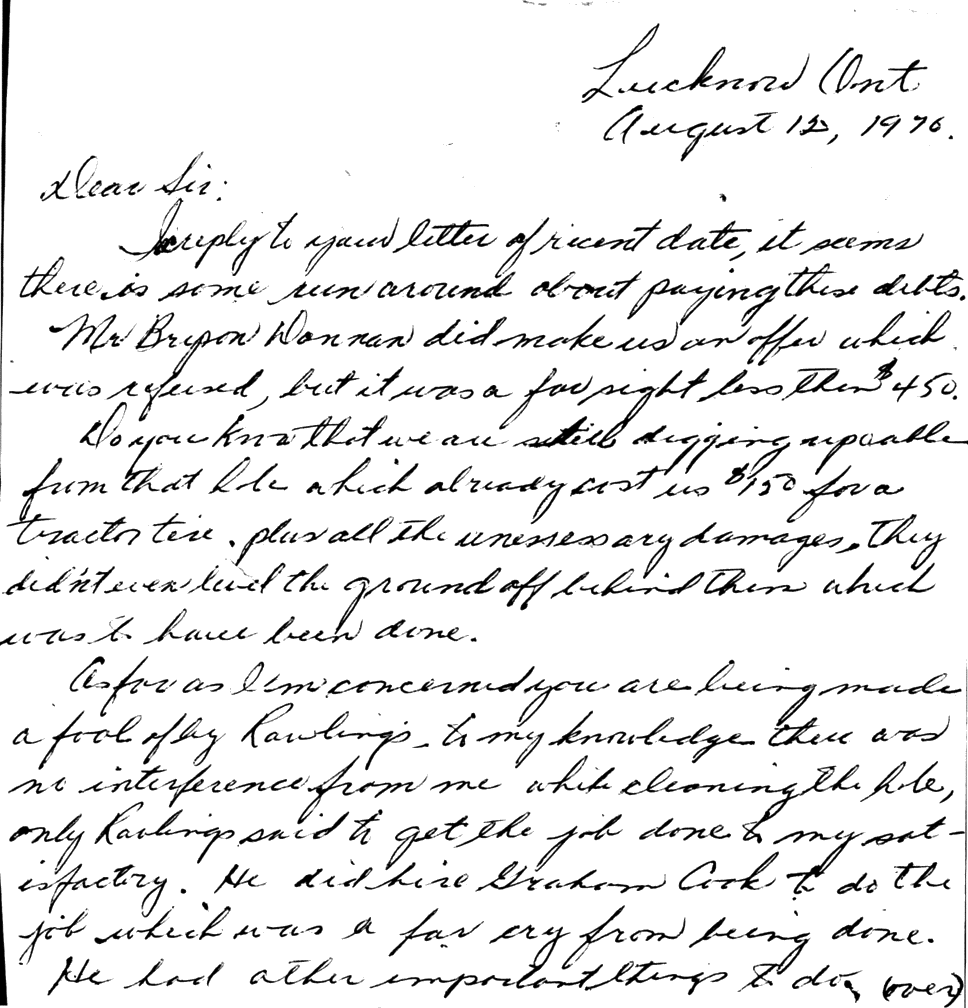 Lucknow Ont
August 12, 1970.
Dear Sir:
In reply to your letter of recent date, it seems
there is some run around about paying these debts.
Mr Donnan did make us an offer which
was refused, but it was a far sight less then $450.
Do you know that we are still digging up cable
from that hole which already cost us $150 for a
tractor tire. plus all the unessessary damages, they
didn't even level the ground off behind them which
was to have been done.
As far as I'm concerned you are being made
a fool of by Rawlings, to my knowledge there was
no interference from me while cleaning the hole,
only Rawlings said to get the job done to my sat-
isfactory. He did hire Graham Cook to do the
job which was a far cry from being done.
He had other important things to do, (over)